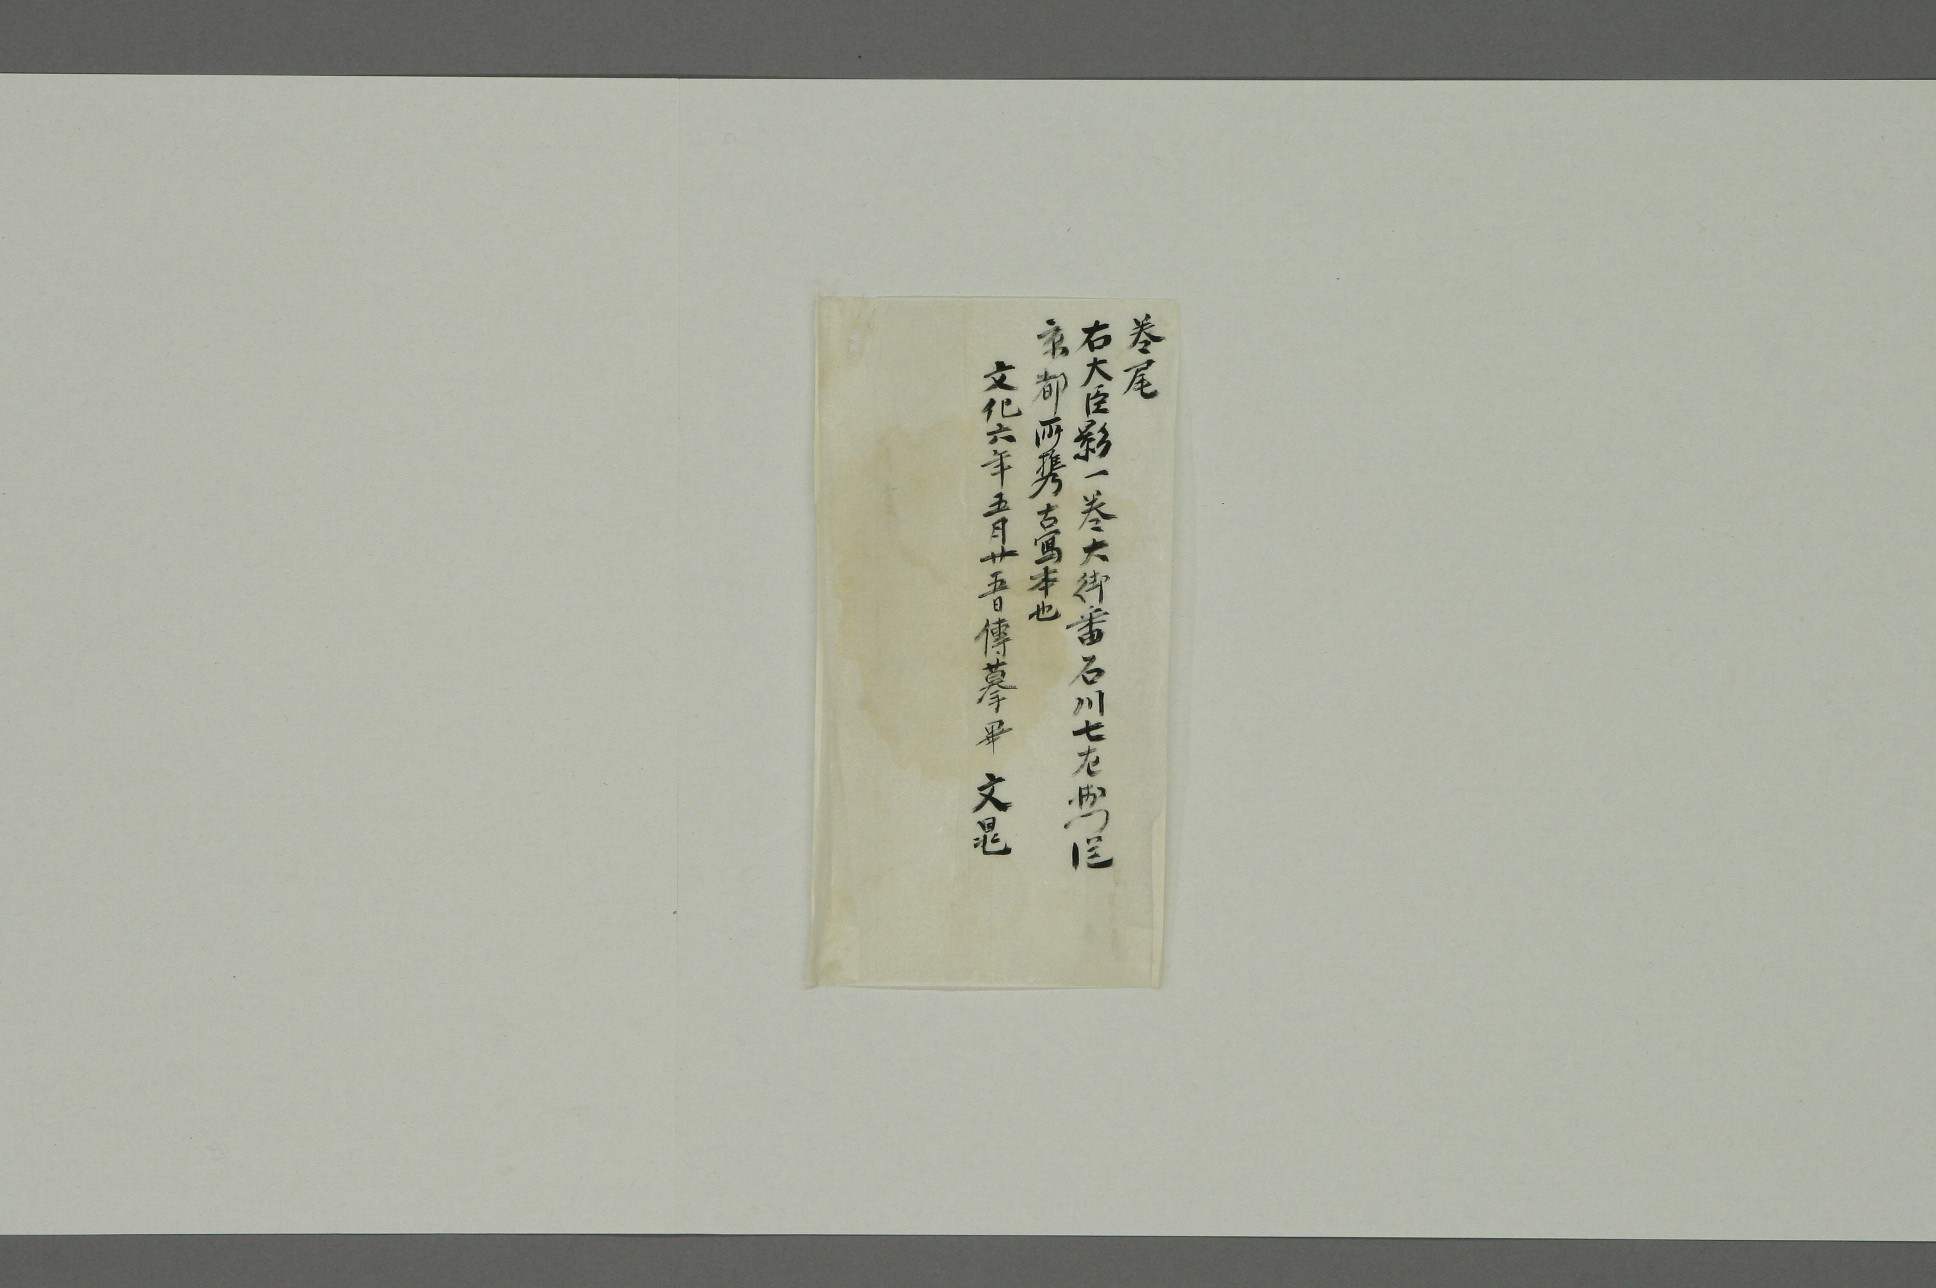 巻尾
右大臣影一巻大御番石川七左衛門従
京都所携古寫本也
文化六年五月廿五日傳摹畢 文晁